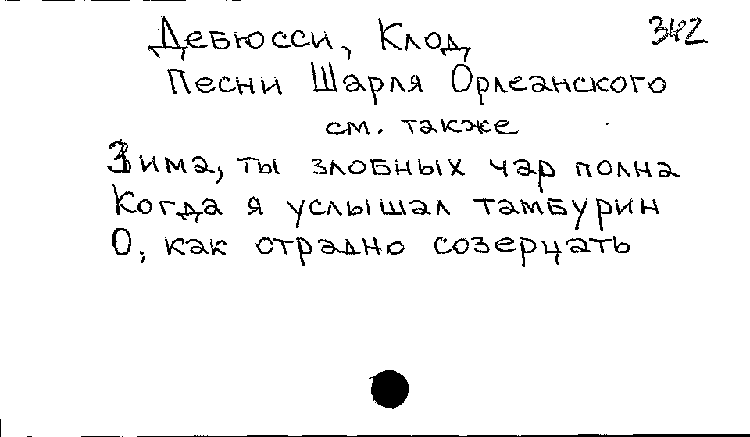 342
Дебюсси, Клод
Песни Шарля Орлеанского
см. также
Зима, ты злобных чар полна
Когда я услышал тамбурин
О, как отрадно созерцать